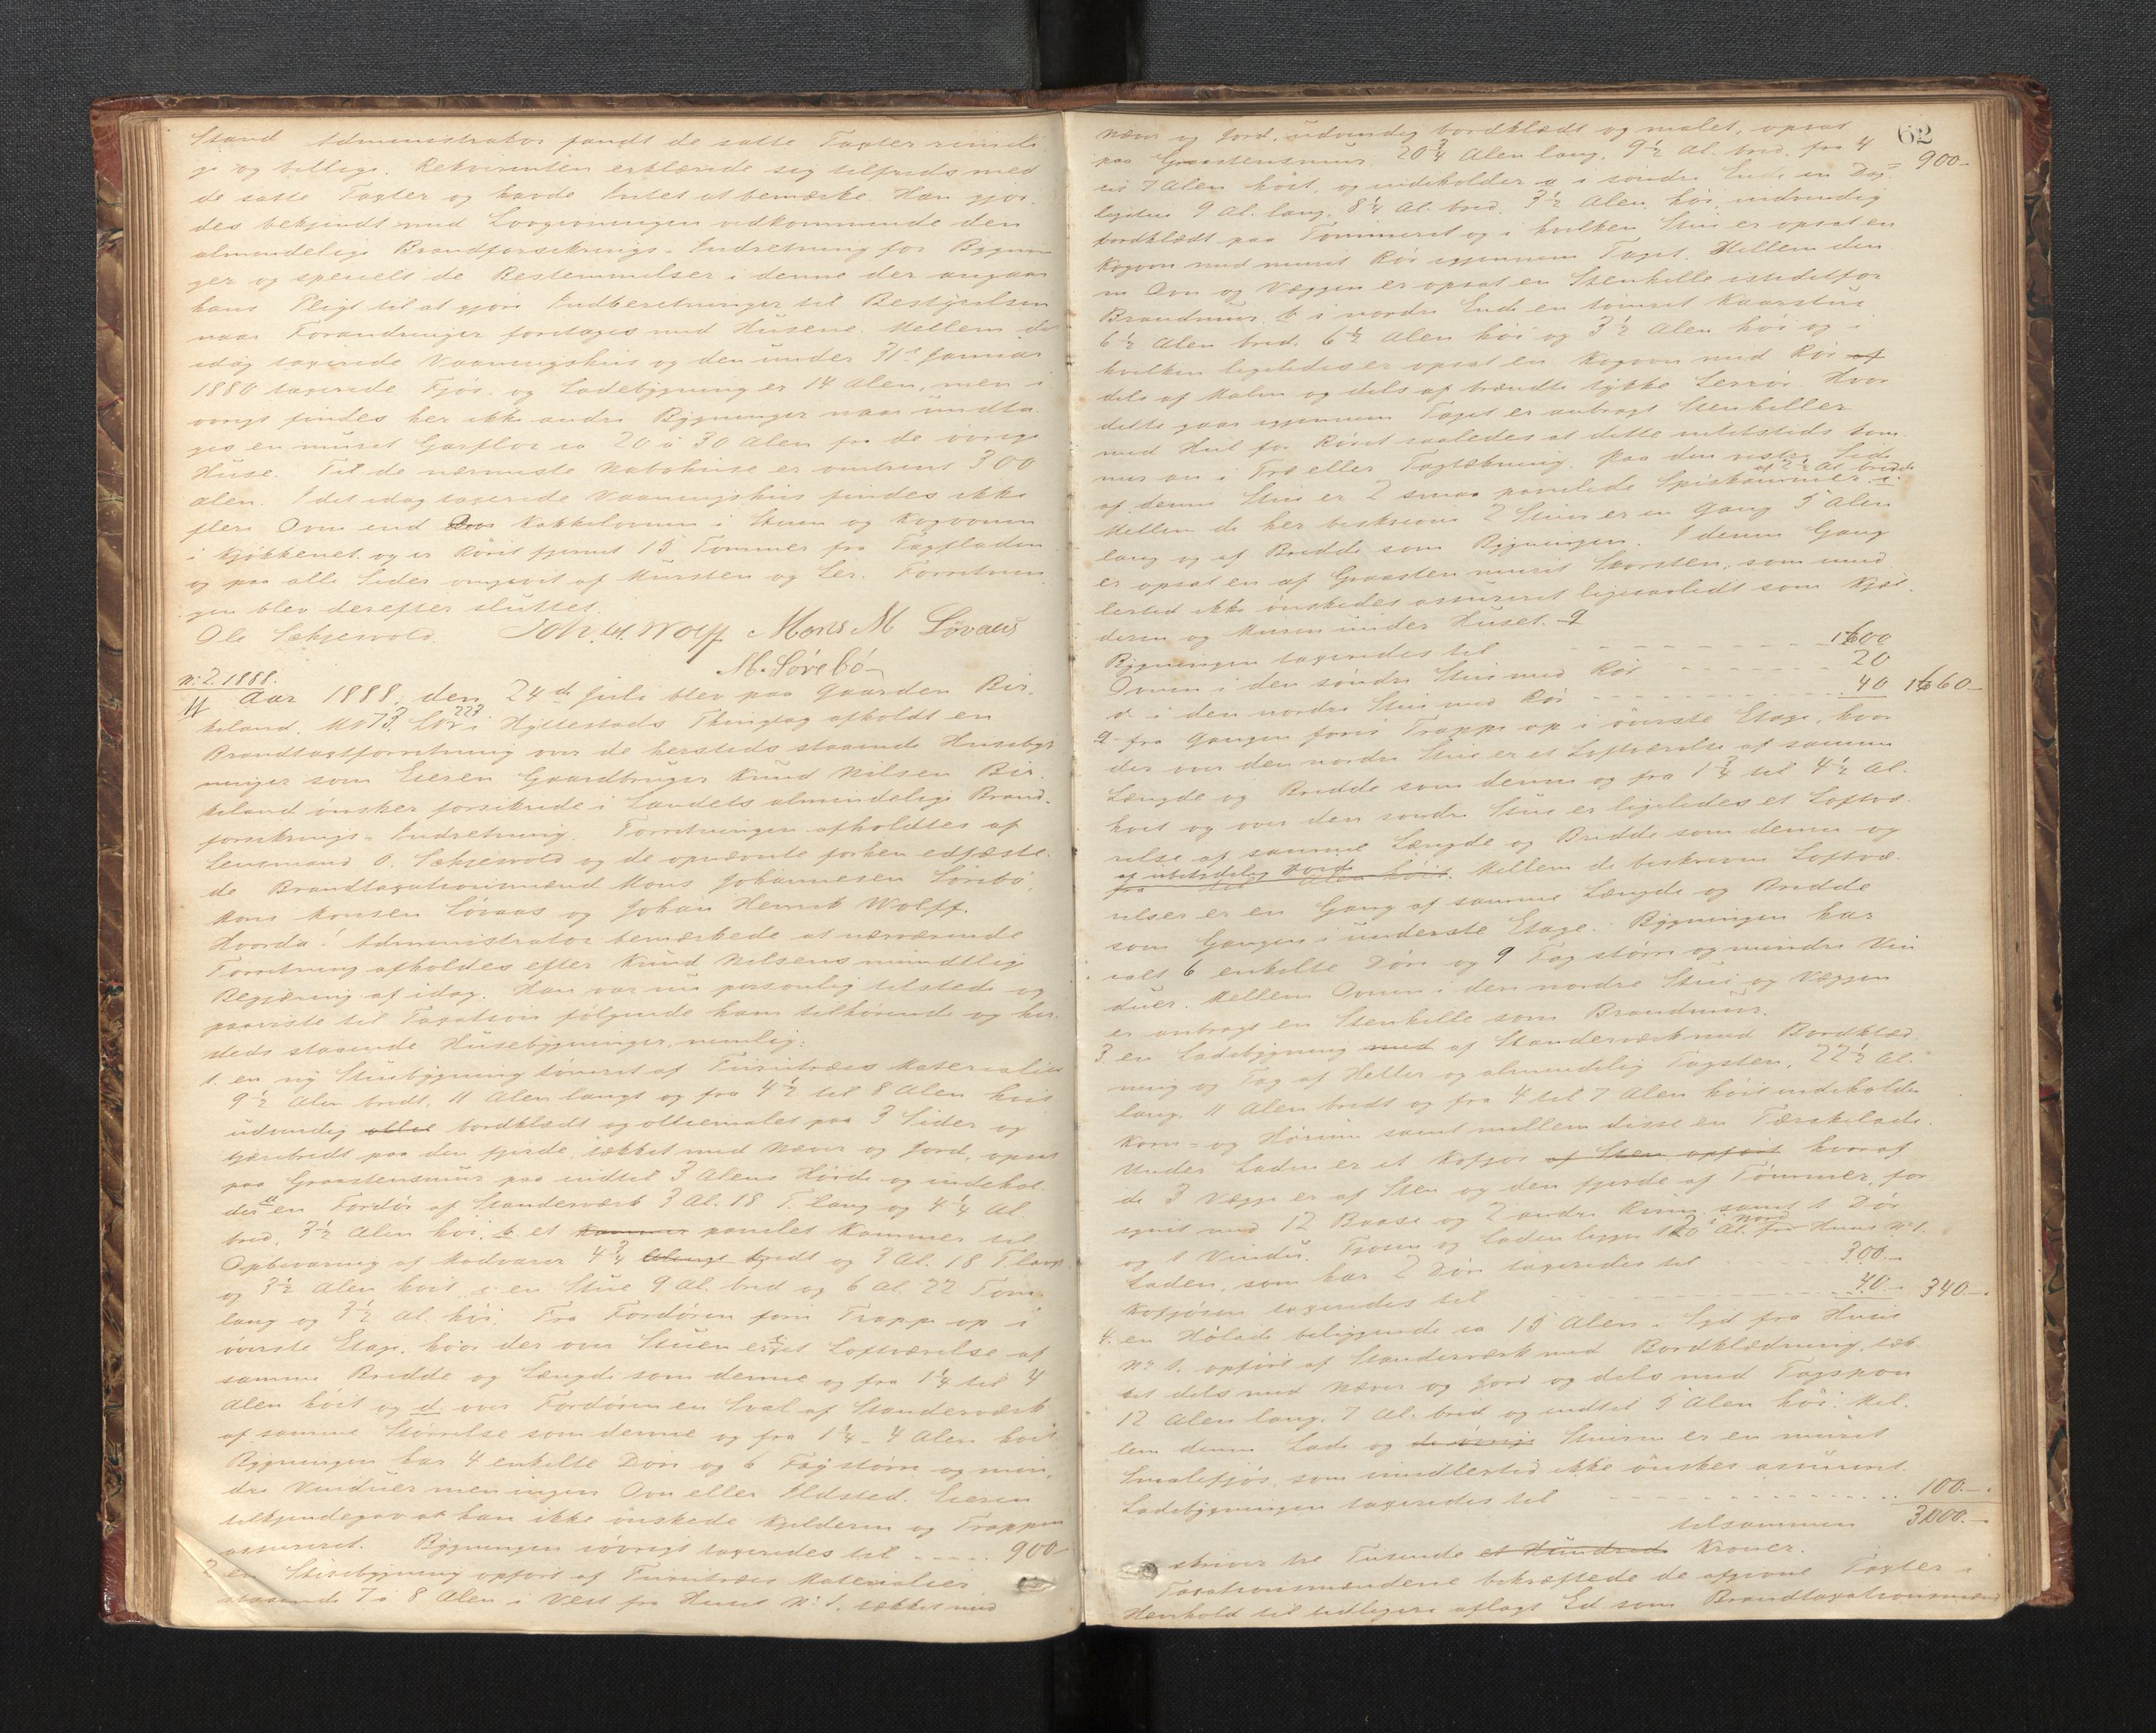 Stand Administrator fandt de satte Taxter rimeli-
ge og billige. Rekvirenten erklærede sig tilfreds med
de satte Taxter og havde Intet at bemærke. Han gjor-
des bekjendt med Lovgivningen vedkommende den
almindelige Brandforsikrings-Indretning for Bygnin
ger og specielt de Bestemmelser i denne der angaar
hans Pligt til at gjøre Indberetninger til Bestyrelsen
naar Forandringer foretages med Husene. Mellem det
idag taxerede Vaaningshus og den under 31te Januar
1880 taxerede Fjøs og Ladebygning er 14 Alen, men i
øvrigt findes her ikke andre Bygninger naar undta-
ges en muret Garflor ca 20 à 30 Alen fra de øvrige
Huse. Til de nærmeste Nabohuse er omtrent 300
Alen. I det idag taxerede Vaaningshus findes ikke
flere Ovne end Kakkelovnen i Stuen og Kogovnen
i Kjøkkenet og er Røret fjernet 15 Tommer fra Tagfladen
og paa alle Sider omgivet af Mursten og Ler. Forretnin
gen blev derefter sluttet.
Ole Sæhjevold. Joh. H. Wolff Mons M Løvaas
M. Sørebø
No. 2. 1888.
Aar 1888, den 24de Juli blev paa Gaarden Bir-
keland, M No 73, Lør 223 i Hyllestads Thinglag afholdt en
Brandtaxtforretning over de hersteds staaende Husebyg
ninger som Eieren Gaardbruger Knud Nilsen Bir-
keland ønsker forsikrede i Landets almindelige Brand-
forsikrings-Indretning. Forretningen afholdtes af
Lensmand O. Sæhjevold og de opnævnte forhen edfæste-
de Brandtaxationsmænd Mons Johannesen Sørebø,
Mons Monsen Løvaas og Johan Henrik Wolff.
Hvorda! Administrator bemærkede at nærværende
Forretning afholdes efter Knud Nilsens mundtlig
Begjæring af idag. Han var nu personlig tilstede og
paaviste til Taxation følgende ham tilhørende og her-
steds staaende Husebygninger, nemlig:
1. en ny Stuebygning tømret af Furutræes Materialier
9½ Alen bredt, 11 Alen langt og fra 4½ til 8 Alen høit
udvendig bordklædt og oliemalet paa 3 Sider og
tjærebredt paa den fjerde, tækket med Næver og Jord, opsat
paa Graastensmur paa indtil 3 Alens Høide og indehol-
der a en Fordør af Standerværk 3 Al. 18 T. lang og 4¼ Al.
bred, 3½ Alen høi, b. et Kammer panelet Kammer til
Opbevaring af Madvarer 4¾ bredt og 3 Al. 18 T. langt
og 3½ Alen høit, c en Stue 9 Al. bred og 6 Al. 22 Tom
lang og 3½ Al. høi. Fra Fordøren fører Trappe op i
øverste Etage, hvor der over Stuen er c. et Loftværelse af
samme Bredde og Længde som denne og fra 1¼ til 4
Alen høit og d. over Fordøren en Sval af Standerværk
af samme Størrelse som denne og fra 1¼ - 4 Alen høit
Bygningen har 4 enkelte Døre og 6 Fag større og min-
dre Vinduer men ingen Ovn eller Ildsted. Eieren
tilkjendegav at han ikke ønskede Kjelderen og Trappen
assureret. Bygningen iøvrigt taxeredes til ----- 900-
2. en Stuebygning opført af Furutræes Materialier
staaende 7 à 8 Alen i Vest fra Huset No 1. tækket med
62
Næver og Jord, udvendig bordklædt og malet, opsat
paa Graastensmur, 20¾ Alen lang, 9½ Al. bred, fra 4 900-
til 7 Alen høit, og indeholder a i søndre Ende en Dag-
ligstue 9 Al. lang, 8¼ Al. bred, 3½ Alen høi indvendig
bordklædt paa Tømmeret og i hvilken Stue er opsat en
Kogovn med muret Rør igjennem Taget. Mellem den
ne Ovn og Væggen er opsat en Stenhelle istedetfor
Brandmur. b i nordre Ende en tømret Kaarstue
6½ Alen bred, 6½ Alen høi og 3½ Alen høi og i
hvilken ligeledes er opsat en Kogovn med Rør af
dels af Malm og dels af brændte tykke Lerrør. Hvor
dette gaar igjennem Taget er anbragt Stenheller
med Hul for Røret saaledes at dette intetsteds kom-
mer an i Træ eller Tagtækning. Paa den vestre Side
af denne Stue er 2 smaa panelede Spiskammer af 2½ Al. bredde
Mellem de her beskrevne 2 Stuer er en Gang 5 Alen
lang og af Bredde som Bygningen. I denne Gang
er opsat en af Graasten muret Skorsten, som imid
lertid ikke ønskedes assureret ligesaalidt som Kjæl-
deren og Muren under Huset.
Bygningen taxeredes til 1600
Ovnen i den søndre Stue med Rør 20
do. i den nordre Stue med Rør 40 1660-
fra Gangen fører Trappe op i øverste Etage, hvor
der over den nordre Stue er et Loftværelse af samme
Længde og Bredde som denne og fra 1¾ til 4½ Al.
høit og over den søndre Stue er ligeledes et Loftvæ-
relse af samme Længde og Bredde som denne og
af ubetydelig Høide fra til Alen høit. Mellem de beskrevne Loftvæ-
relser er en Gang af samme Længde og Bredde
som Gangen i underste Etage. Bygningen har
ialt 6 enkelte Døre og 9 Fag større og mindre Vin
duer. Mellem Ovnen i den nordre Stue og Væggen
er anbragt en Stenhelle som Brandmur.
3. en Ladebygning med af Standerværk med Bordklæd
ning og Tag af Heller og almindelig Tagsten, 22½ Al.
lang, 11 Alen bredt og fra 4 til 7 Alen høit indeholder
Korn- og Hørum samt mellem disse en Tærskelade.
Under Laden er et Kofjøs af Sten opført hvoraf
de 3 Vægge er af Sten og den fjerde af Tømmer, for
synet med 12 Baase og 2 andre Rum samt 1 Dør
og 1 Vindu. Fjøsen og Laden ligge 20 Al. i Nord fra Huus No 1.
Laden, som har 2 Døre taxeredes til 300.-
Kofjøsen taxeredes til 40.- 340.-
4. en Hølade beliggende ca 15 Alen i Syd fra Huus
No 1. opført af Standerværk med Bordklædning, tæk
ket dels med Næver og Jord og dels med Tagspon
12 Alen lang, 7 Al. bred og indtil 5 Alen høi. Mel-
lem denne Lade og de øvrige Stuerne er en muret
Smalefjøs, som imidlertid ikke ønskes assureret.
Ladebygningen taxeredes til 100.-
tilsammen 3000.-
skriver tre Tusende et Hundrede Kroner.
Taxationsmændene bekræftede de afgivne Taxter i
Henhold til tidligere aflagt Ed som Brandtaxationsmænd